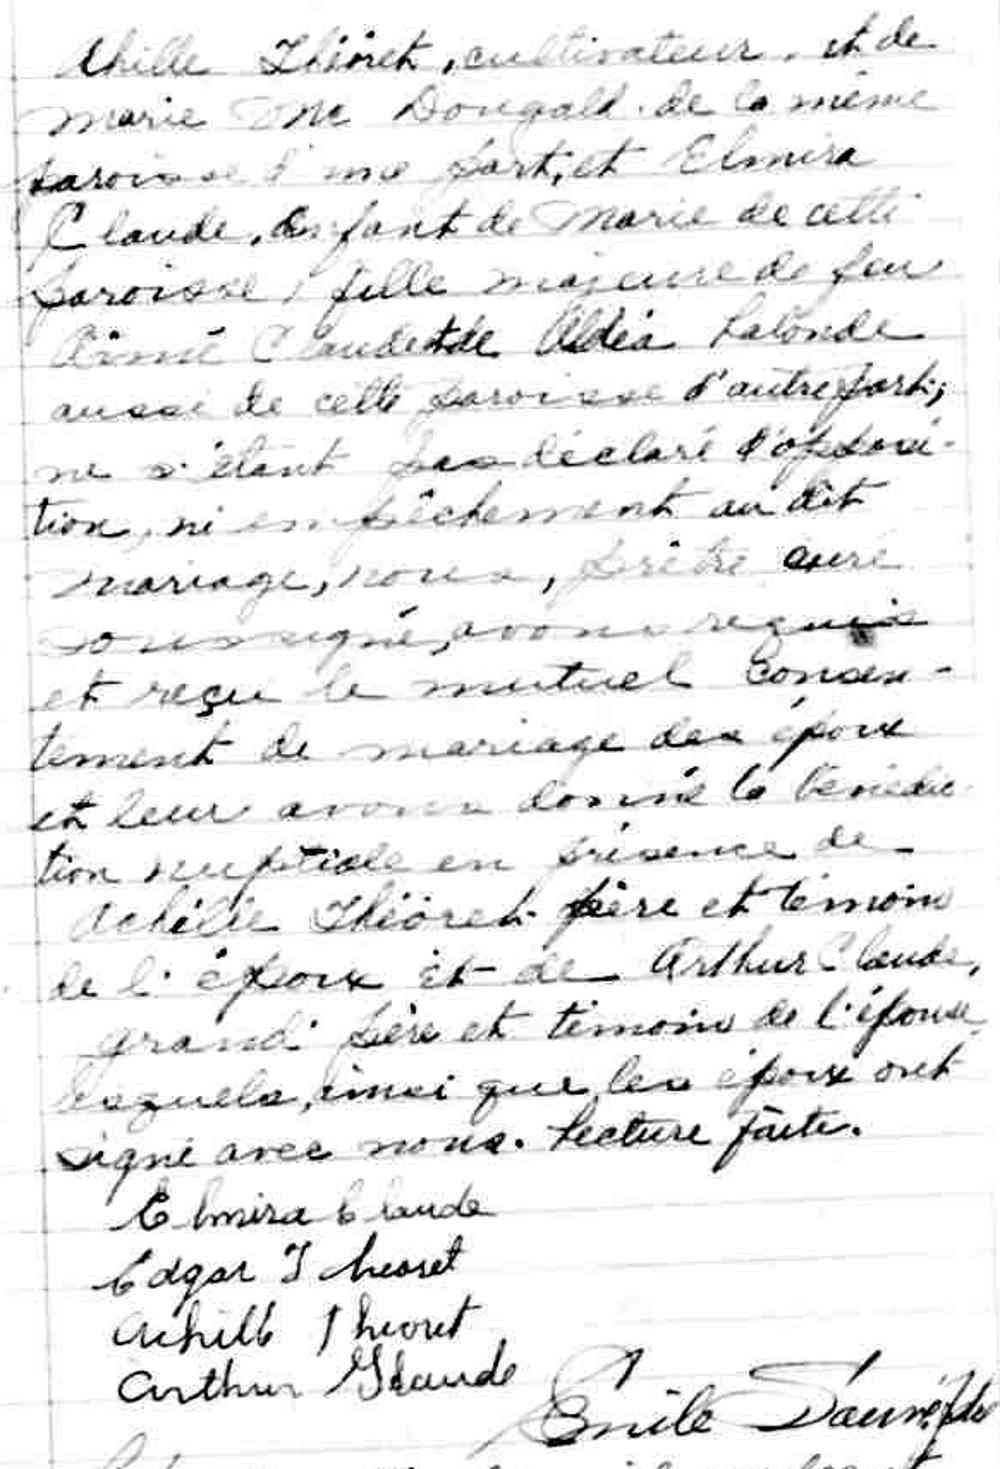 Achille Théorêt, cultivateur, et de
Marie Mc Dougald de la même
paroisse d'une part; et Elmira
Claude, enfant de Marie de cette
paroisse, fille majeure de feu
Aimé Claude et de Aldéa Lalonde
aussi de cette paroisse d'autre part;
ne s'étant pas déclaré d'opposi-
tion, ni empêchement au dit
mariage, nous, prêtre curé
soussigné, avons requis
et reçu le mutuel consen-
tement de mariage des époux
et leur avons donné la bénédic-
tion nuptiale en présence de
Achille Théorêt père et témoin
de l'époux et de Arthur Claude,
grand père et témoin de l'épouse,
lesquels, ainsi que les époux ont
signé avec nous. Lecture faite.
Elmira Claude
Edgar Theoret
Achille Theoret
Arthur Glaude
Emile Sauvé, ptre